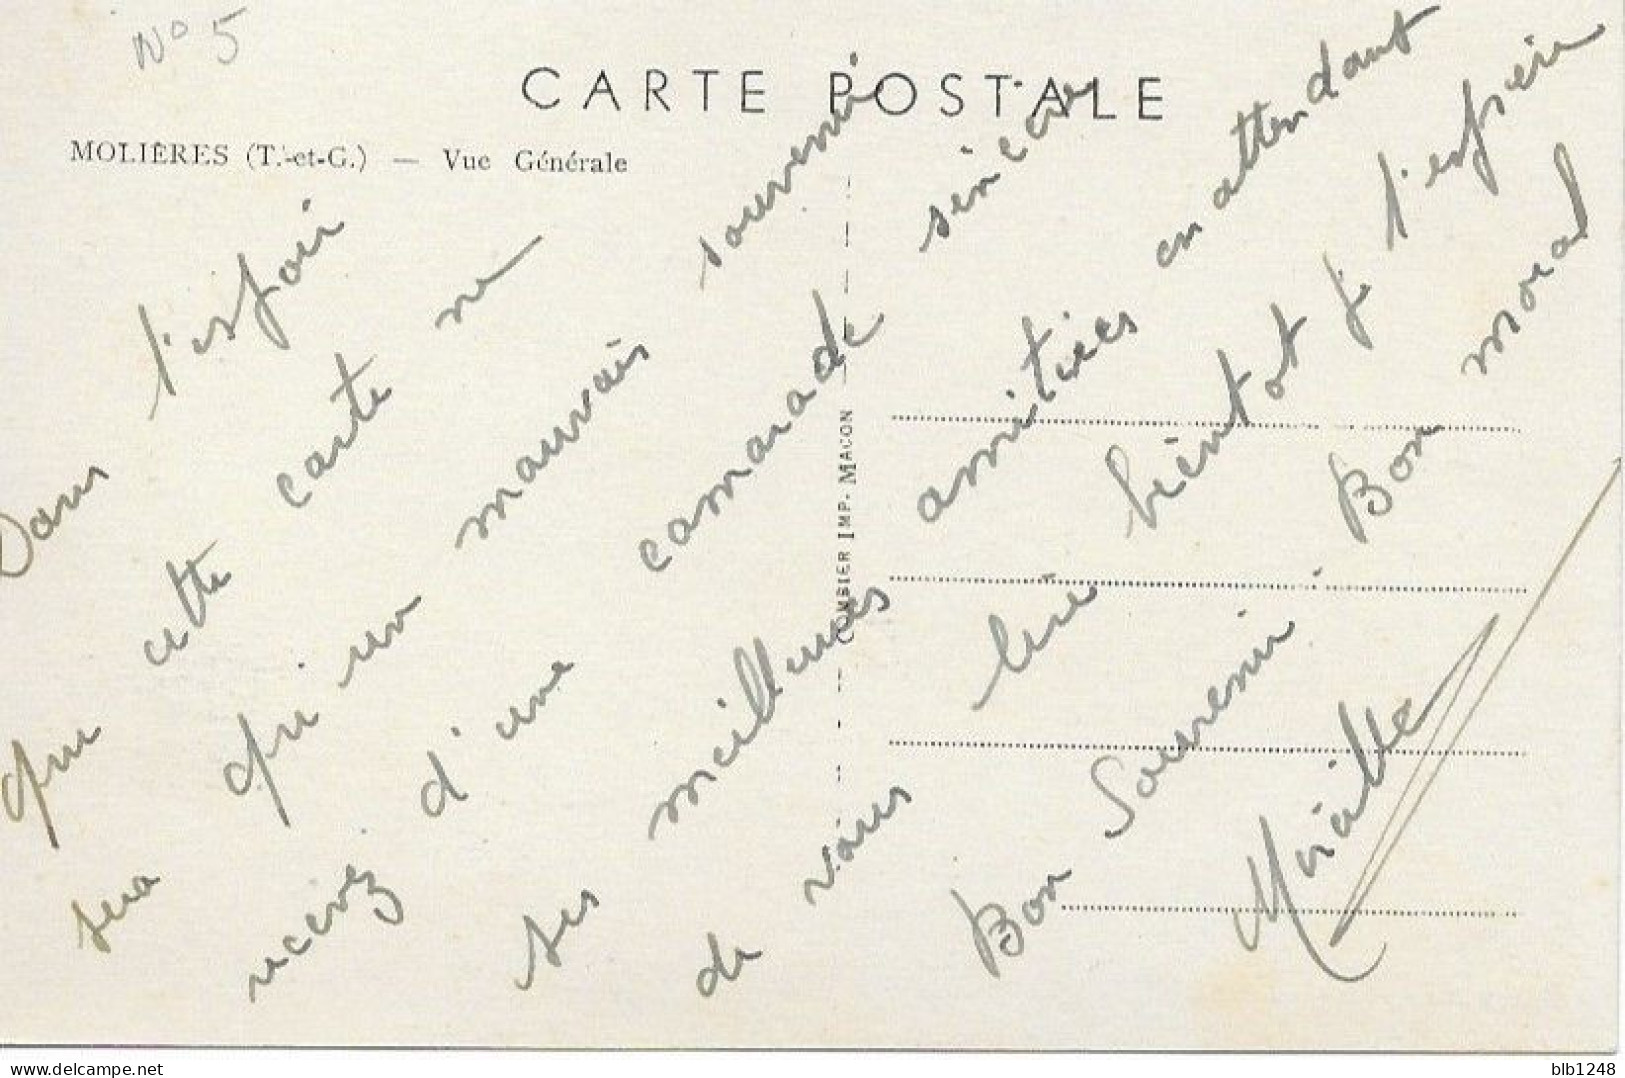 N° 5
CARTE POSTALE
MOLIÈRES (T.-et-G.) — Vue Générale
Dans l'espoir
que cette carte ne
sera qu'un mauvais souvenir
recevez d'une camarade sincère
ses meilleures amitiées en attendant
de vous lire bientot je l'espère
Bon Souvenir. Bon moral
Mireille
COMBIER IMP. MACON
delcampe.net
blb1248